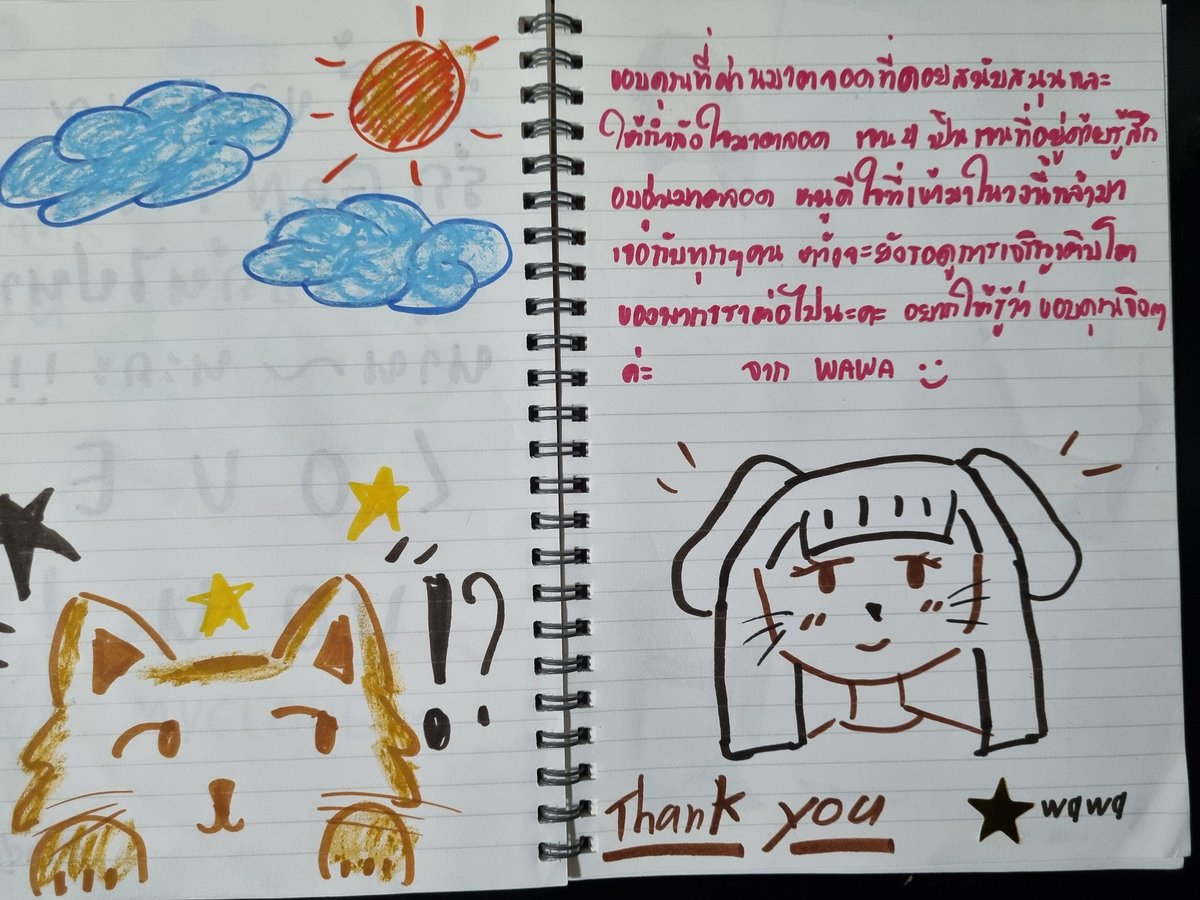 ขอบคุณที่ผ่านมาตลอดที่คอยสนับสนุนและ
ให้กำลังใจมาตลอด แซน 4 เป็น แซนที่อยู่ด้วยรู้สึก
อบอุ่นมาตลอด หนูดีใจที่เข้ามาในวงนี้แล้วมา
เจอกับทุกๆคน
การเจริญเติบโต
ของพวกเราต่อไปนะคะ อยากให้รู้ว่า ขอบคุณจริงๆ
ค่ะ จาก WAWA
!?
Thank you
wawa